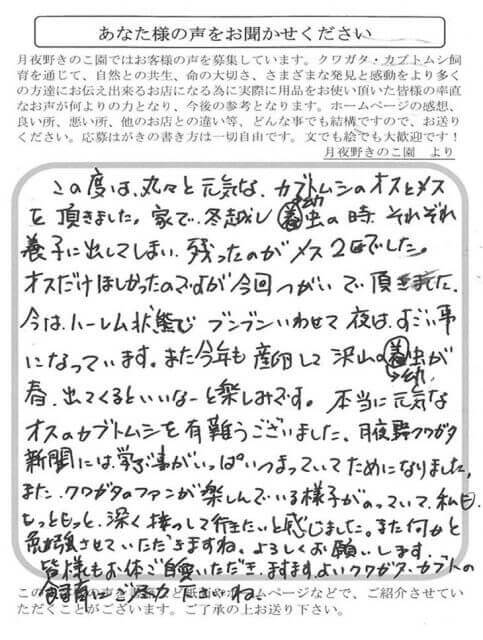 あなた様の声をお聞かせください
月夜野きのこ園ではお客様の声を募集しています。クワガタ・カブトムシ飼
育を通じて、自然との共生、命の大切さ、さまざまな発見と感動をより多く
の方達にお伝え出来るお店になる為に実際に用品をお使い頂いた皆様の率直
なお声が何よりの力となり、今後の参考となります。ホームページの感想、
良い所、悪い所、他のお店との違い等、どんな事でも結構ですので、お送り
ください。応募はがきの書き方は一切自由です。文でも絵でも大歓迎です！
月夜野きのこ園　より
この度は、丸々と元気な、カブトムシのオスとメス
を頂きました。家で、冬越し幼虫の時、それぞれ
養子に出してしまい、残ったのがメス2匹でした。
オスだけほしかったのですが今回つがいで頂きました、
今は、ハーレム状態でブンブンいわせて夜は、すごい事
になっています。また今年も産卵して沢山の幼虫が
春、出てくるといいなーと楽しみです。本当に元気な
オスのカブトムシを有難うございました、月夜野クワガタ
新聞には、学ぶ事がいっぱいつまっていてためになりました。
また、クワガタのファンが楽しんでいる様子がのっていて、私も、
もっともっと、深く接っして行きたいと感じました。また何かと
勉強させていただきますね。よろしくお願いします。
皆様もお体ご自愛いただき、ますますよいクワガタ・カブトの
飼育にご尽力下さいね。
この
ホームページなどで、ご紹介させてい
ただくことがございます。ご了承の上お送り下さい。